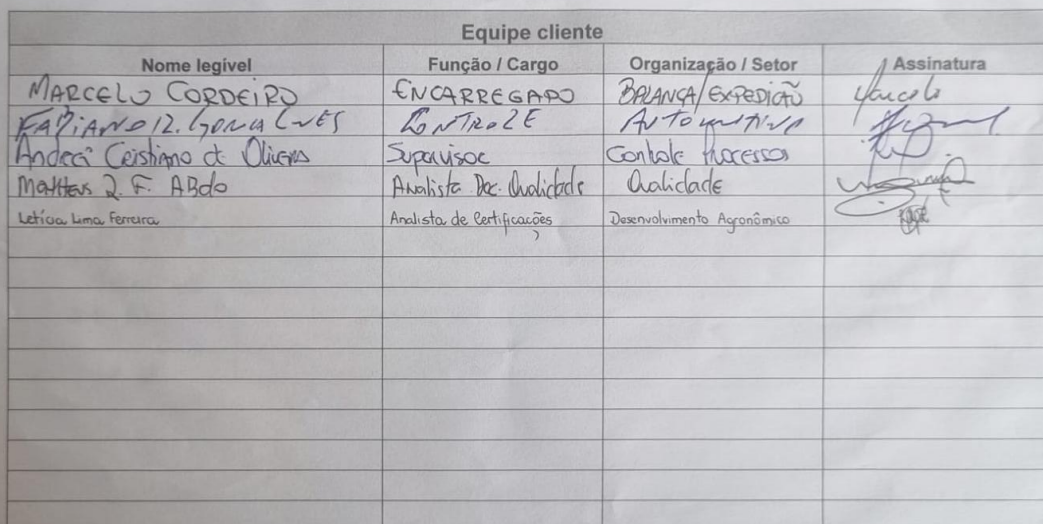 Equipe cliente
Nome legível Função / Cargo Organização / Setor Assinatura
MARCELO CORDEIRO ENCARREGADO BALANÇA/EXPEDIÇÃO Marcelo
FABIANO R. GONCALVES CONTROLE AUTOMOTIVA
Cristiano de Oliveira Supervisor Controle Processos
Matheus Q. F. ABdo Analista Doc. Qualidade Qualidade
Letícia Lima Ferreira Analista de Certificações Desenvolvimento Agronômico